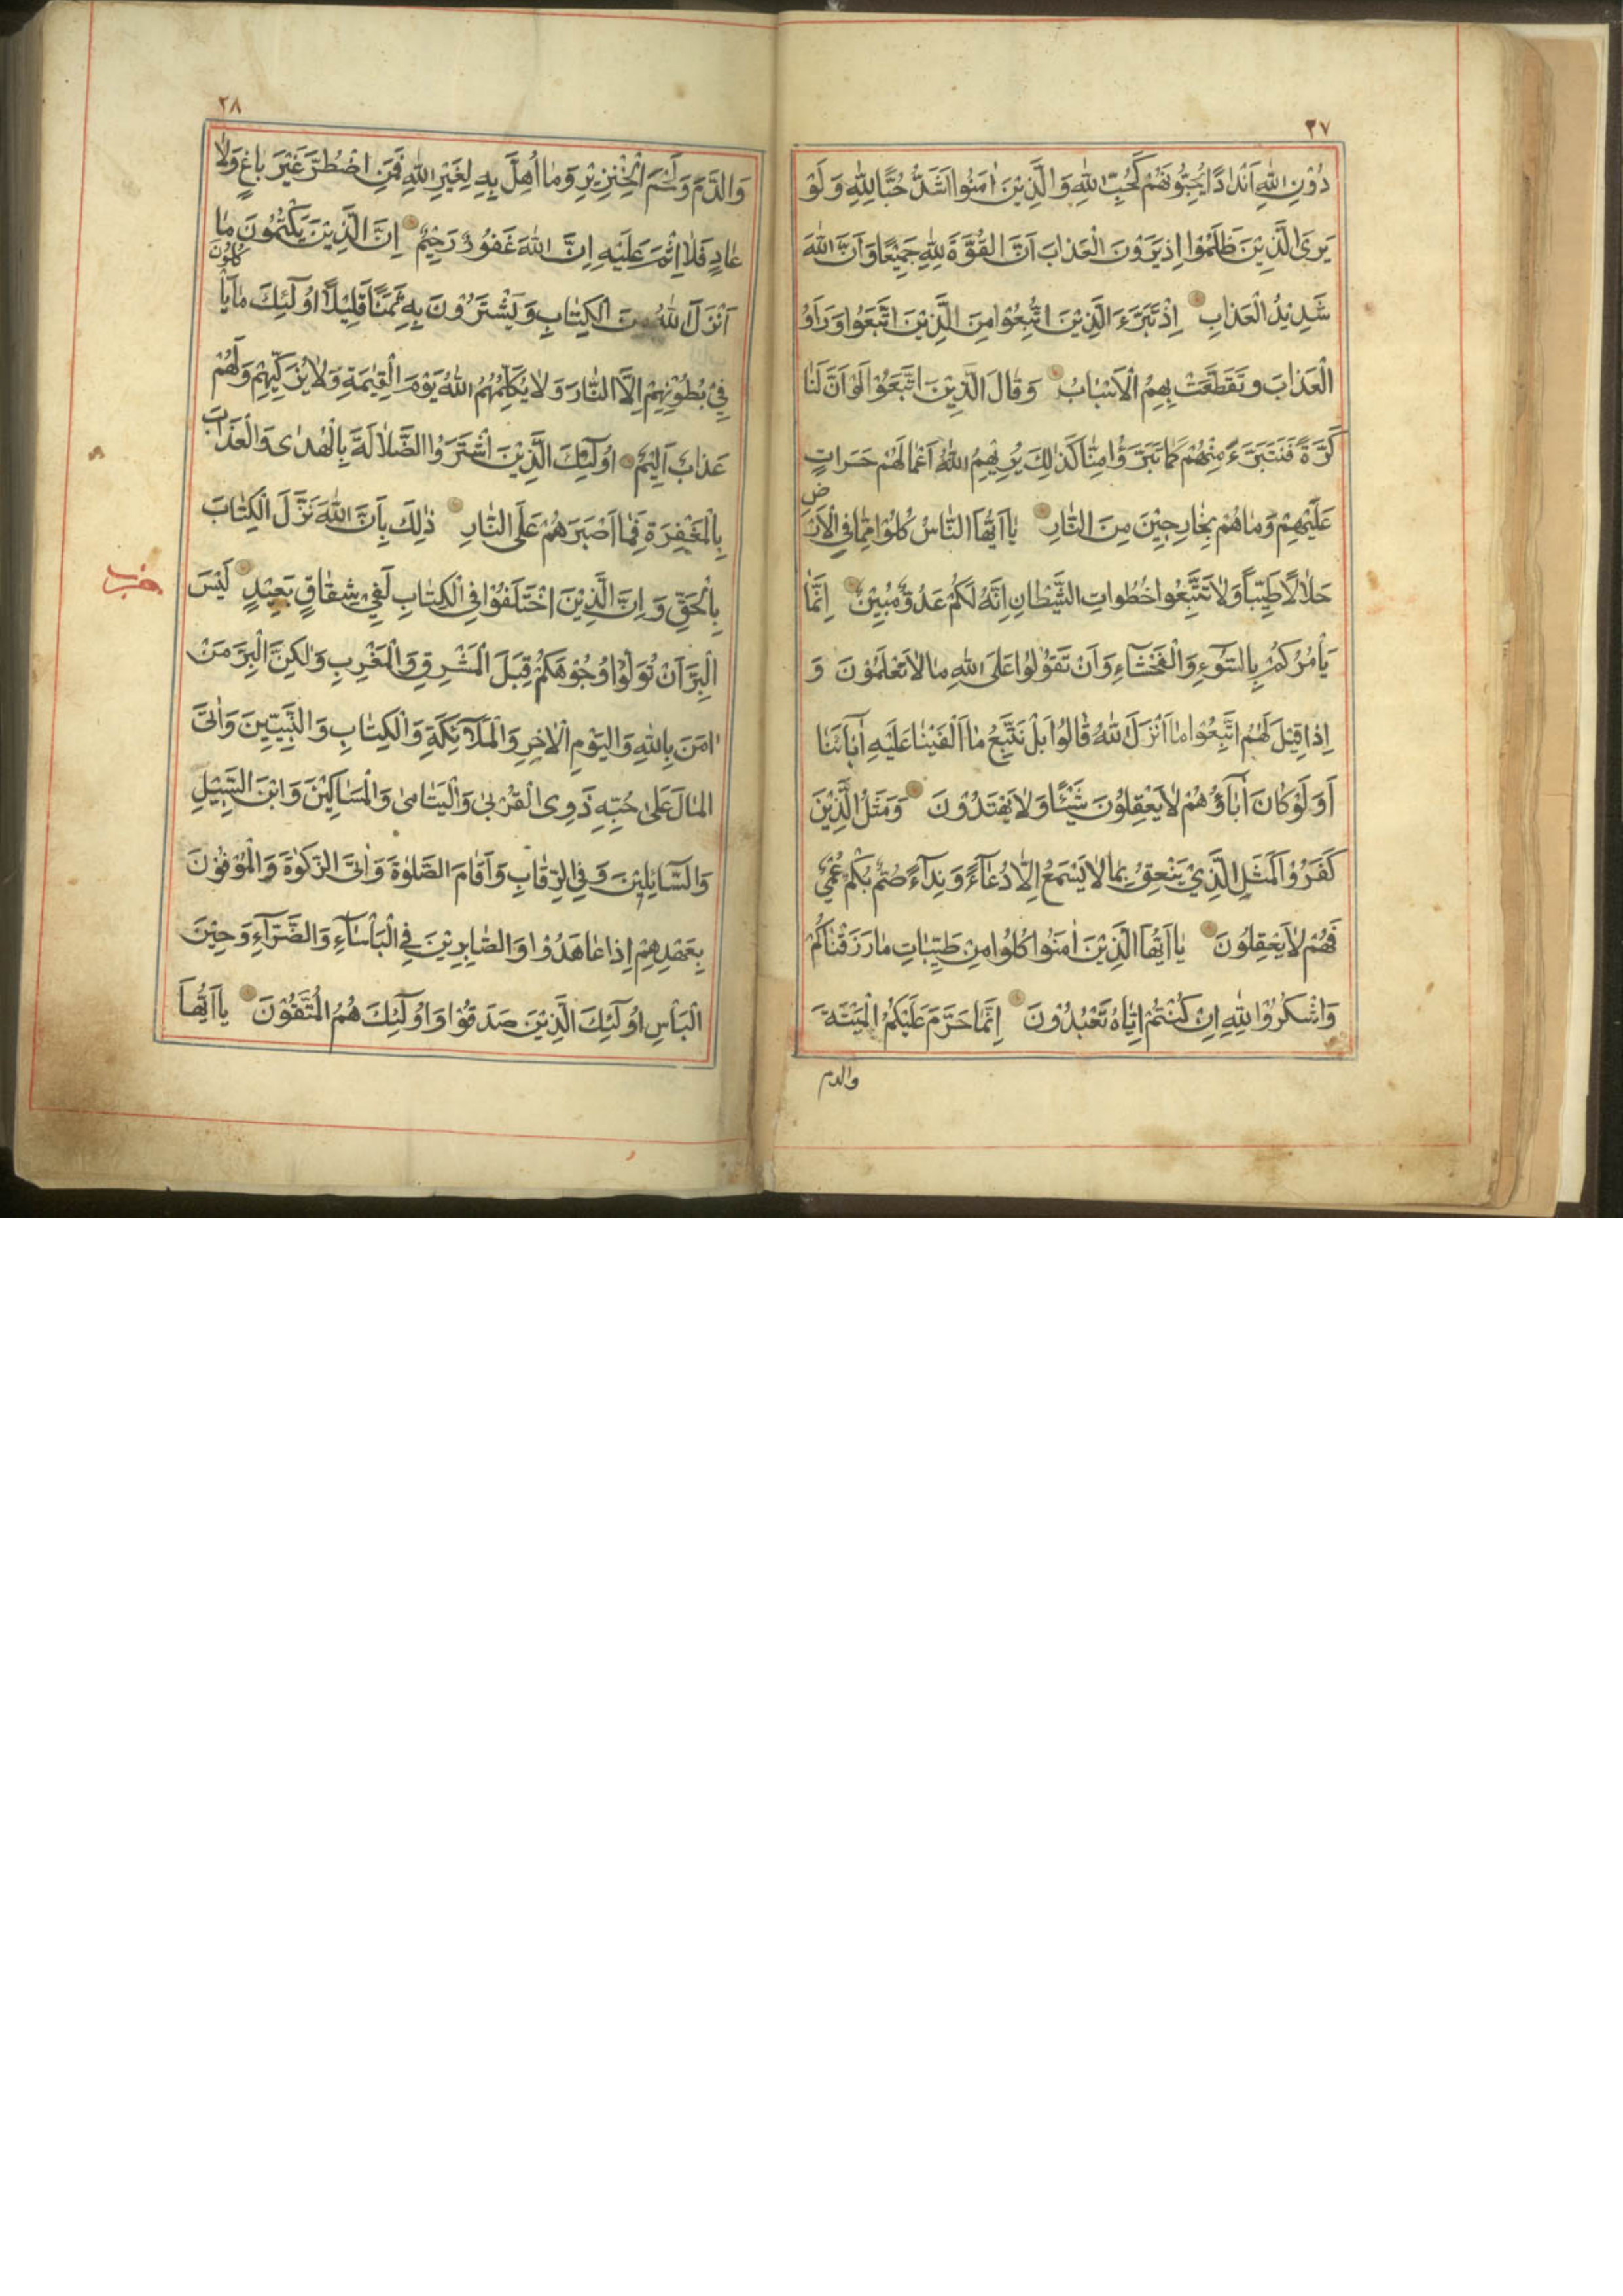 ٢٧
دُوْنِ اللّٰهِ اَنْدَادًا يُحِبُّوْنَهُمْ كَحُبِّ اللّٰهِ وَالَّذِيْنَ اٰمَنُوا اَشَدُّ حُبًّا لِلّٰهِ وَلَوْ
يَرَى الَّذِيْنَ ظَلَمُوْا اِذْ يَرَوْنَ الْعَذَابَ اَنَّ الْقُوَّةَ لِلّٰهِ جَمِيْعًا وَاَنَّ اللّٰهَ
شَدِيْدُ الْعَذَابِ اِذْ تَبَرَّءَ الَّذِيْنَ اتُّبِعُوْا مِنَ الَّذِيْنَ اتَّبَعُوا وَرَاَوُ
الْعَذَابَ وَتَقَطَّعَتْ بِهِمُ الْاَسْبَابُ وَقَالَ الَّذِيْنَ اتَّبَعُوْا لَوْ اَنَّ لَنَا
كَرَّةً فَنَتَبَرَّءَ مِنْهُمْ كَمَا تَبَرَّؤُا مِنَّا كَذٰلِكَ يُرِيْهِمُ اللّٰهُ اَعْمَالَهُمْ حَسَرَاتٍ
عَلَيْهِمْ وَمَا هُمْ بِخَارِجِيْنَ مِنَ النَّارِ يَا اَيُّهَا النَّاسُ كُلُوْا مِمَّا فِي الْاَرْضِ
حَلَالًا طَيِّبًا وَلَا تَتَّبِعُوا خُطُوَاتِ الشَّيْطَانِ اِنَّهُ لَكُمْ عَدُوٌّ مُبِيْنٌ اِنَّمَا
يَأْمُرُكُمْ بِالسُّوْءِ وَالْفَحْشَاءِ وَاَنْ تَقُوْلُوْا عَلَى اللّٰهِ مَا لَا تَعْلَمُوْنَ وَ
اِذَا قِيْلَ لَهُمُ اتَّبِعُوْا مَا اَنْزَلَ اللّٰهُ قَالُوْا بَلْ نَتَّبِعُ مَا اَلْفَيْنَا عَلَيْهِ اٰبَآئَنَا
اَوَلَوْ كَانَ اٰبَآؤُهُمْ لَا يَعْقِلُوْنَ شَيْئًا وَلَا يَهْتَدُوْنَ وَمَثَلُ الَّذِيْنَ
كَفَرُوْا كَمَثَلِ الَّذِيْ يَنْعِقُ بِمَا لَا يَسْمَعُ اِلَّا دُعَآءً وَنِدَآءً صُمٌّ بُكْمٌ عُمْيٌ
فَهُمْ لَا يَعْقِلُوْنَ يَا اَيُّهَا الَّذِيْنَ اٰمَنُوا كُلُوا مِنْ طَيِّبَاتِ مَا رَزَقْنَاكُمْ
وَاشْكُرُوْا لِلّٰهِ اِنْ كُنْتُمْ اِيَّاهُ تَعْبُدُوْنَ اِنَّمَا حَرَّمَ عَلَيْكُمُ الْمَيْتَةَ
والدم
٢٨
وَالدَّمَ وَلَحْمَ الْخِنْزِيْرِ وَمَا اُهِلَّ بِهِ لِغَيْرِ اللّٰهِ فَمَنِ اضْطُرَّ غَيْرَ بَاغٍ وَلَا
عَادٍ فَلَا اِثْمَ عَلَيْهِ اِنَّ اللّٰهَ غَفُوْرٌ رَحِيْمٌ اِنَّ الَّذِيْنَ يَكْتُمُوْنَ مَا
اَنْزَلَ اللّٰهُ مِنَ الْكِتَابِ وَيَشْتَرُوْنَ بِهِ ثَمَنًا قَلِيْلًا اُولٰٓئِكَ مَا يَأْكُلُوْنَ
فِيْ بُطُوْنِهِمْ اِلَّا النَّارَ وَلَا يُكَلِّمُهُمُ اللّٰهُ يَوْمَ الْقِيٰمَةِ وَلَا يُزَكِّيْهِمْ وَلَهُمْ
عَذَابٌ اَلِيْمٌ اُولٰٓئِكَ الَّذِيْنَ اشْتَرَوُا الضَّلَالَةَ بِالْهُدٰى وَالْعَذَابَ
بِالْمَغْفِرَةِ فَمَا اَصْبَرَهُمْ عَلَى النَّارِ ذٰلِكَ بِاَنَّ اللّٰهَ نَزَّلَ الْكِتَابَ
بِالْحَقِّ وَاِنَّ الَّذِيْنَ اخْتَلَفُوْا فِي الْكِتَابِ لَفِيْ شِقَاقٍ بَعِيْدٍ لَيْسَ
حزب
الْبِرَّ اَنْ تُوَلُّوْا وُجُوْهَكُمْ قِبَلَ الْمَشْرِقِ وَالْمَغْرِبِ وَلٰكِنَّ الْبِرَّ مَنْ
اٰمَنَ بِاللّٰهِ وَالْيَوْمِ الْاٰخِرِ وَالْمَلَآئِكَةِ وَالْكِتَابِ وَالنَّبِيِّيْنَ وَاٰتَى
الْمَالَ عَلٰى حُبِّهِ ذَوِى الْقُرْبٰى وَالْيَتَامٰى وَالْمَسَاكِيْنَ وَابْنَ السَّبِيْلِ
وَالسَّآئِلِيْنَ وَفِي الرِّقَابِ وَاَقَامَ الصَّلٰوةَ وَاٰتَى الزَّكٰوةَ وَالْمُوْفُوْنَ
بِعَهْدِهِمْ اِذَا عَاهَدُوْا وَالصَّابِرِيْنَ فِي الْبَأْسَآءِ وَالضَّرَّآءِ وَحِيْنَ
الْبَأْسِ اُولٰٓئِكَ الَّذِيْنَ صَدَقُوْا وَاُولٰٓئِكَ هُمُ الْمُتَّقُوْنَ يَا اَيُّهَا